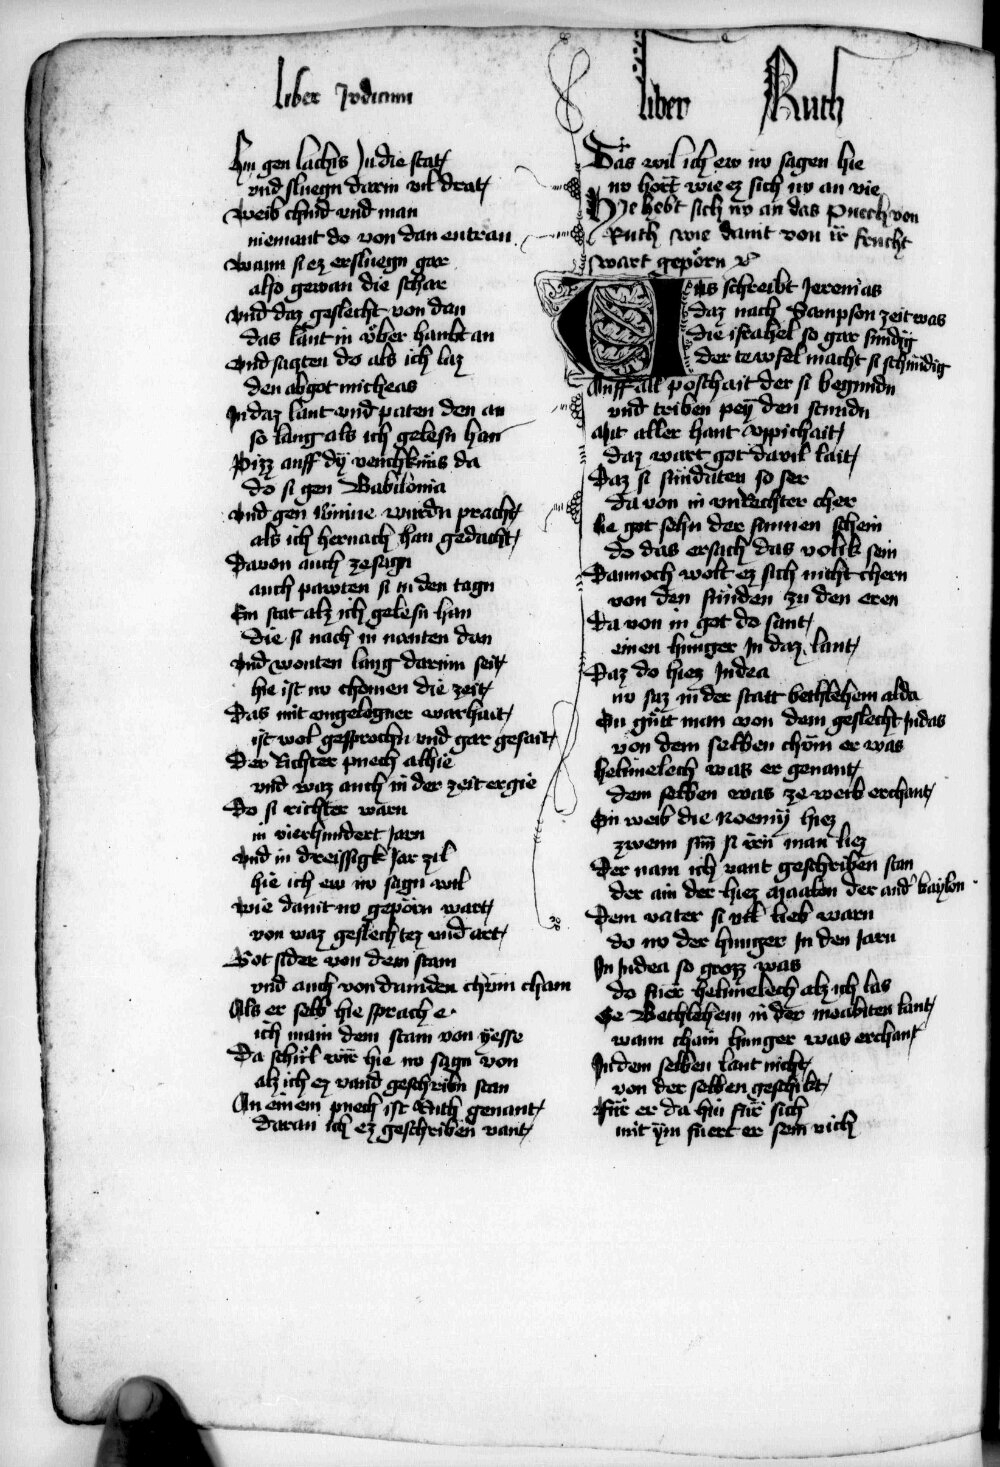 liber Judicum
Hin gen lachis Jn die stat
vnd sluegn darin vil drat
Weib chind vnd man
niemant do von dan entran
Wann si ez ersluegn gar
also gewan die schar
Vnd daz geslecht von dan
das lant in über hankt an
Vnd sagten do als ich laz
den abgot micheas
Jn daz lant vnd paten den an
so lang als ich gelesn han
Pizz auff dy venchknüs da
do si gen Babilonia
Vnd gen Niniue wurdn pracht
als ich hernach han gedacht
Dauon auch ze sagn
auch pawten si in den tagn
Ein stat alz ich gelesn han
die si nach in nanten dan
Vnd wonten lang darinn seit
hie ist nv chomen die zeit
Das mit vngelogner warhait
ist wol gesprochn vnd gar gesait
Der Richter puech alhie
vnd waz auch in der zeit ergie
Do si richter warn
in vierhundert Jarn
Vnd in dreissigk Jar zil
hie ich ew nv sagn wil
Wie dauit nv geporn wart
von waz geslechtez vnd art
Got sider von dem stam
vnd auch von dannden chüm cham
Als er selb hie sprach e
ich main dem stam von yesse
Da schül wir hie nv sagn von
alz ich ez vand geschribn stan
An einem puech ist Ruth genant
daran ich ez geschriben vant
liber Ruth
Das wil ich ew nv sagen hie
nv hort wie ez sich nv an vie
Hye hebt sich nv an das puech von
Ruth wie dauit von ir frucht
wart geporn
Uns schreibt Jeremias
daz nach Sampson zeit was
die israhel so gar sündig
der tewfel macht si schündig
Auff all poschait der si begundn
vnd triben pey den stundn
Mit aller hant vppichait
daz wart got dauil lait
Daz si sündaten so ser
da von in vnrechter cher
lie got sehn der sunnen schein
do das ersach das volk sein
Dannoch wolt ez sich nicht chern
von den sünden zu den eren
Da von in got do sant
einen hunger Jn daz lant
Daz do hiez Judea
nv saz in der statt bethlehem alda
Ein gütt man von dem geslecht Judas
von dem selben chom er was
helimelech was er genant
dem selben was ze weib erchant
Ein weib die Noemy hiez
zwenn sün si irm man liez
Der nam ich vant geschriben stan
der ain der hiez Maalon der and' kaylon
Dem vater si vil lieb warn
do nv der hunger Jn den Jarn
Jn Judea so grozz was
do fuer helimelech alz ich las
Ee Bethlehem in der moabiten lant
wann chain hunger was erchant
Jn dem selben lant nicht
von der selben geschiht
Für er da hin für sich
mit ym fuert er sein vich